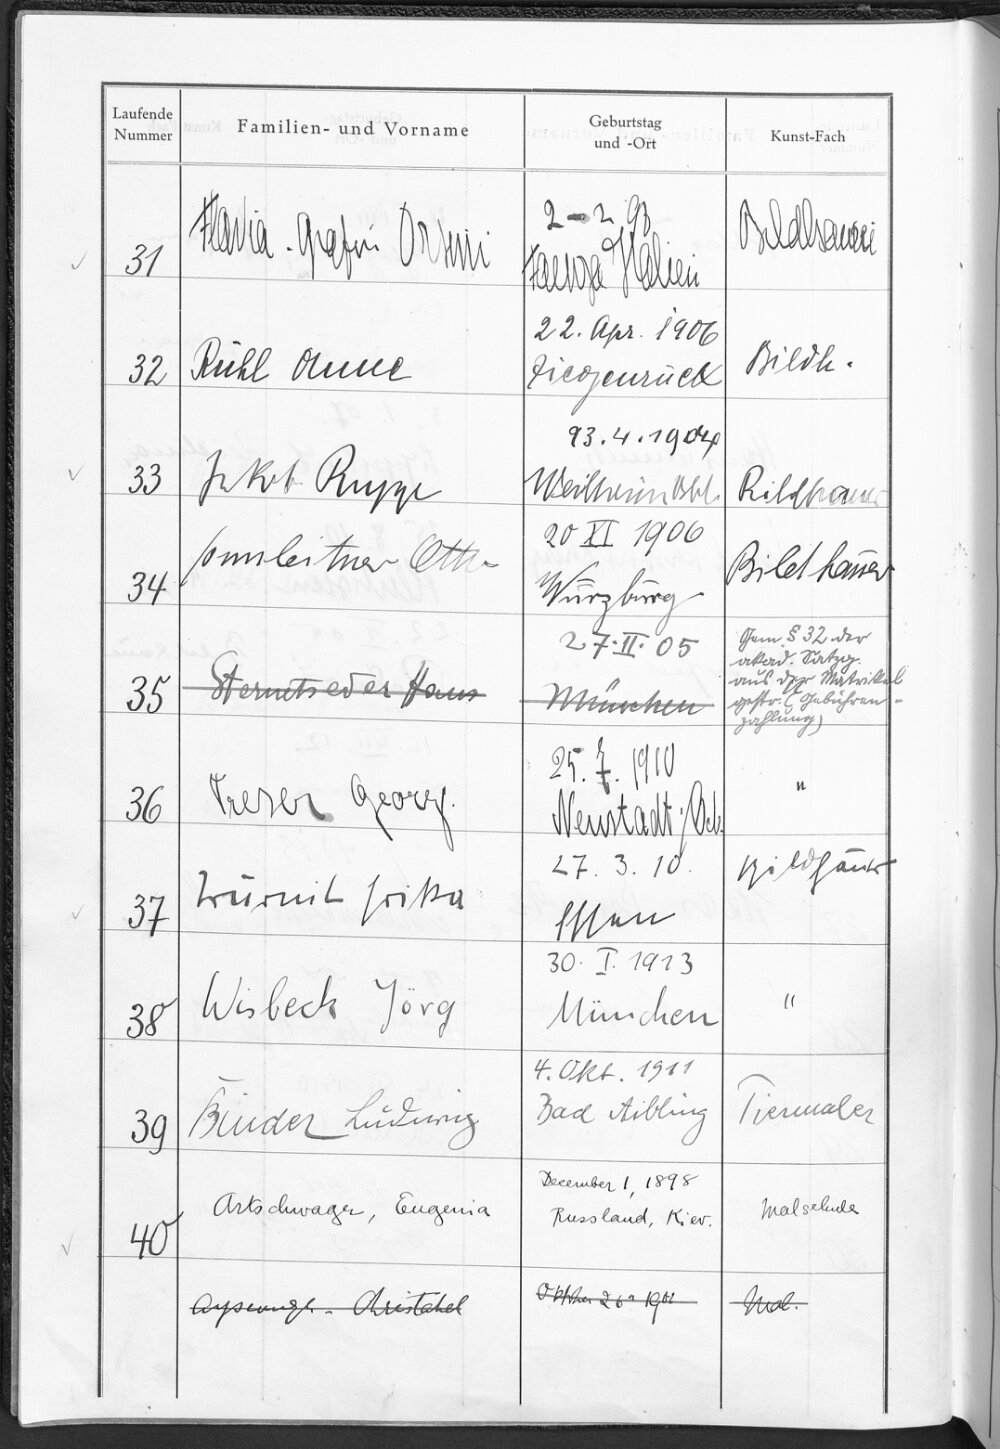 Laufende
Nummer
Familien- und Vorname
Geburtstag
und -Ort
Kunst-Fach
31
Flavia. Gräfin Orsini
2-2 93
Faenza Italien
Bildhauerei
32
Rühl Anne
22. Apr. 1906
Ziegenrück
Bildh.
33
Jakob Ruppe
4.1904
Weilheim Obb.
Bildhauer
34
Sonnleitner Otto
20 XI 1906
Würzburg
Bildhauer
35
Hans
27.II.05
München
Gem. § 32 der
akad. Satzg.
aus der Matrikel
gestr. (Gebühren-
zahlung)
36
Treser Georg.
25.7.1910
Neustadt
"
37
Würmit
27. 3. 10.
Essen
Bildhauer
38
Wisbeck Jörg
30. I. 1913
München
"
39
Binder Ludwig
4. Okt. 1911
Bad Aibling
Tiermaler
40
Artschwager, Eugenia
December 1, 1898
Russland, Kiev.
Malschule
Christabel
Mal.